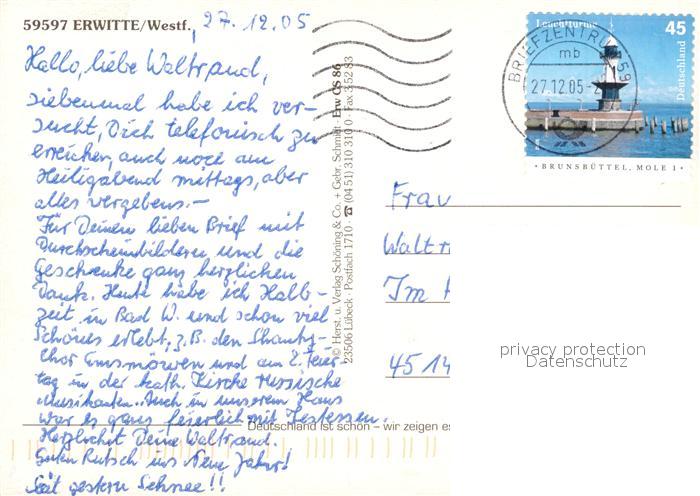 59597 ERWITTE/Westf., 27.12.05
Hallo, liebe Waltraud,
siebenmal habe ich ver-
sucht, Dich telefonisch zu
erreichen, auch noch am
Heiligabend mittags, aber
alles vergebens. –
Für Deinen lieben Brief mit
Durchscheinbildern und die
Geschenke ganz herzlichen
Dank. Heute habe ich Halb-
zeit in Bad W. und schon viel
Schönes erlebt, z.B. den Shanty-
Chor Emsmöwen und am 2. Feier-
tag in der kath. Kirche russische
Musikanten. Auch in unserem Haus
war es ganz feierlich mit Festessen.
Herzlichst Deine Waltraud.
Guten Rutsch ins Neue Jahr!
Seit gestern Schnee!!
Deutschland ist schön – wir zeigen es
© Herst. u. Verlag Schöning & Co. + Gebr. Schmidt · Erw CS 86
23506 Lübeck · Postfach 1710 · ☎ (04 51) 310 310 0 · Fax 3 52 93
Leuchttürme
45
Deutschland
BRIEFZENTRUM 59
mb
27.12.05-2
• BRUNSBÜTTEL, MOLE 1 •
Frau
Waltr
Im
45 14
privacy protection
Datenschutz